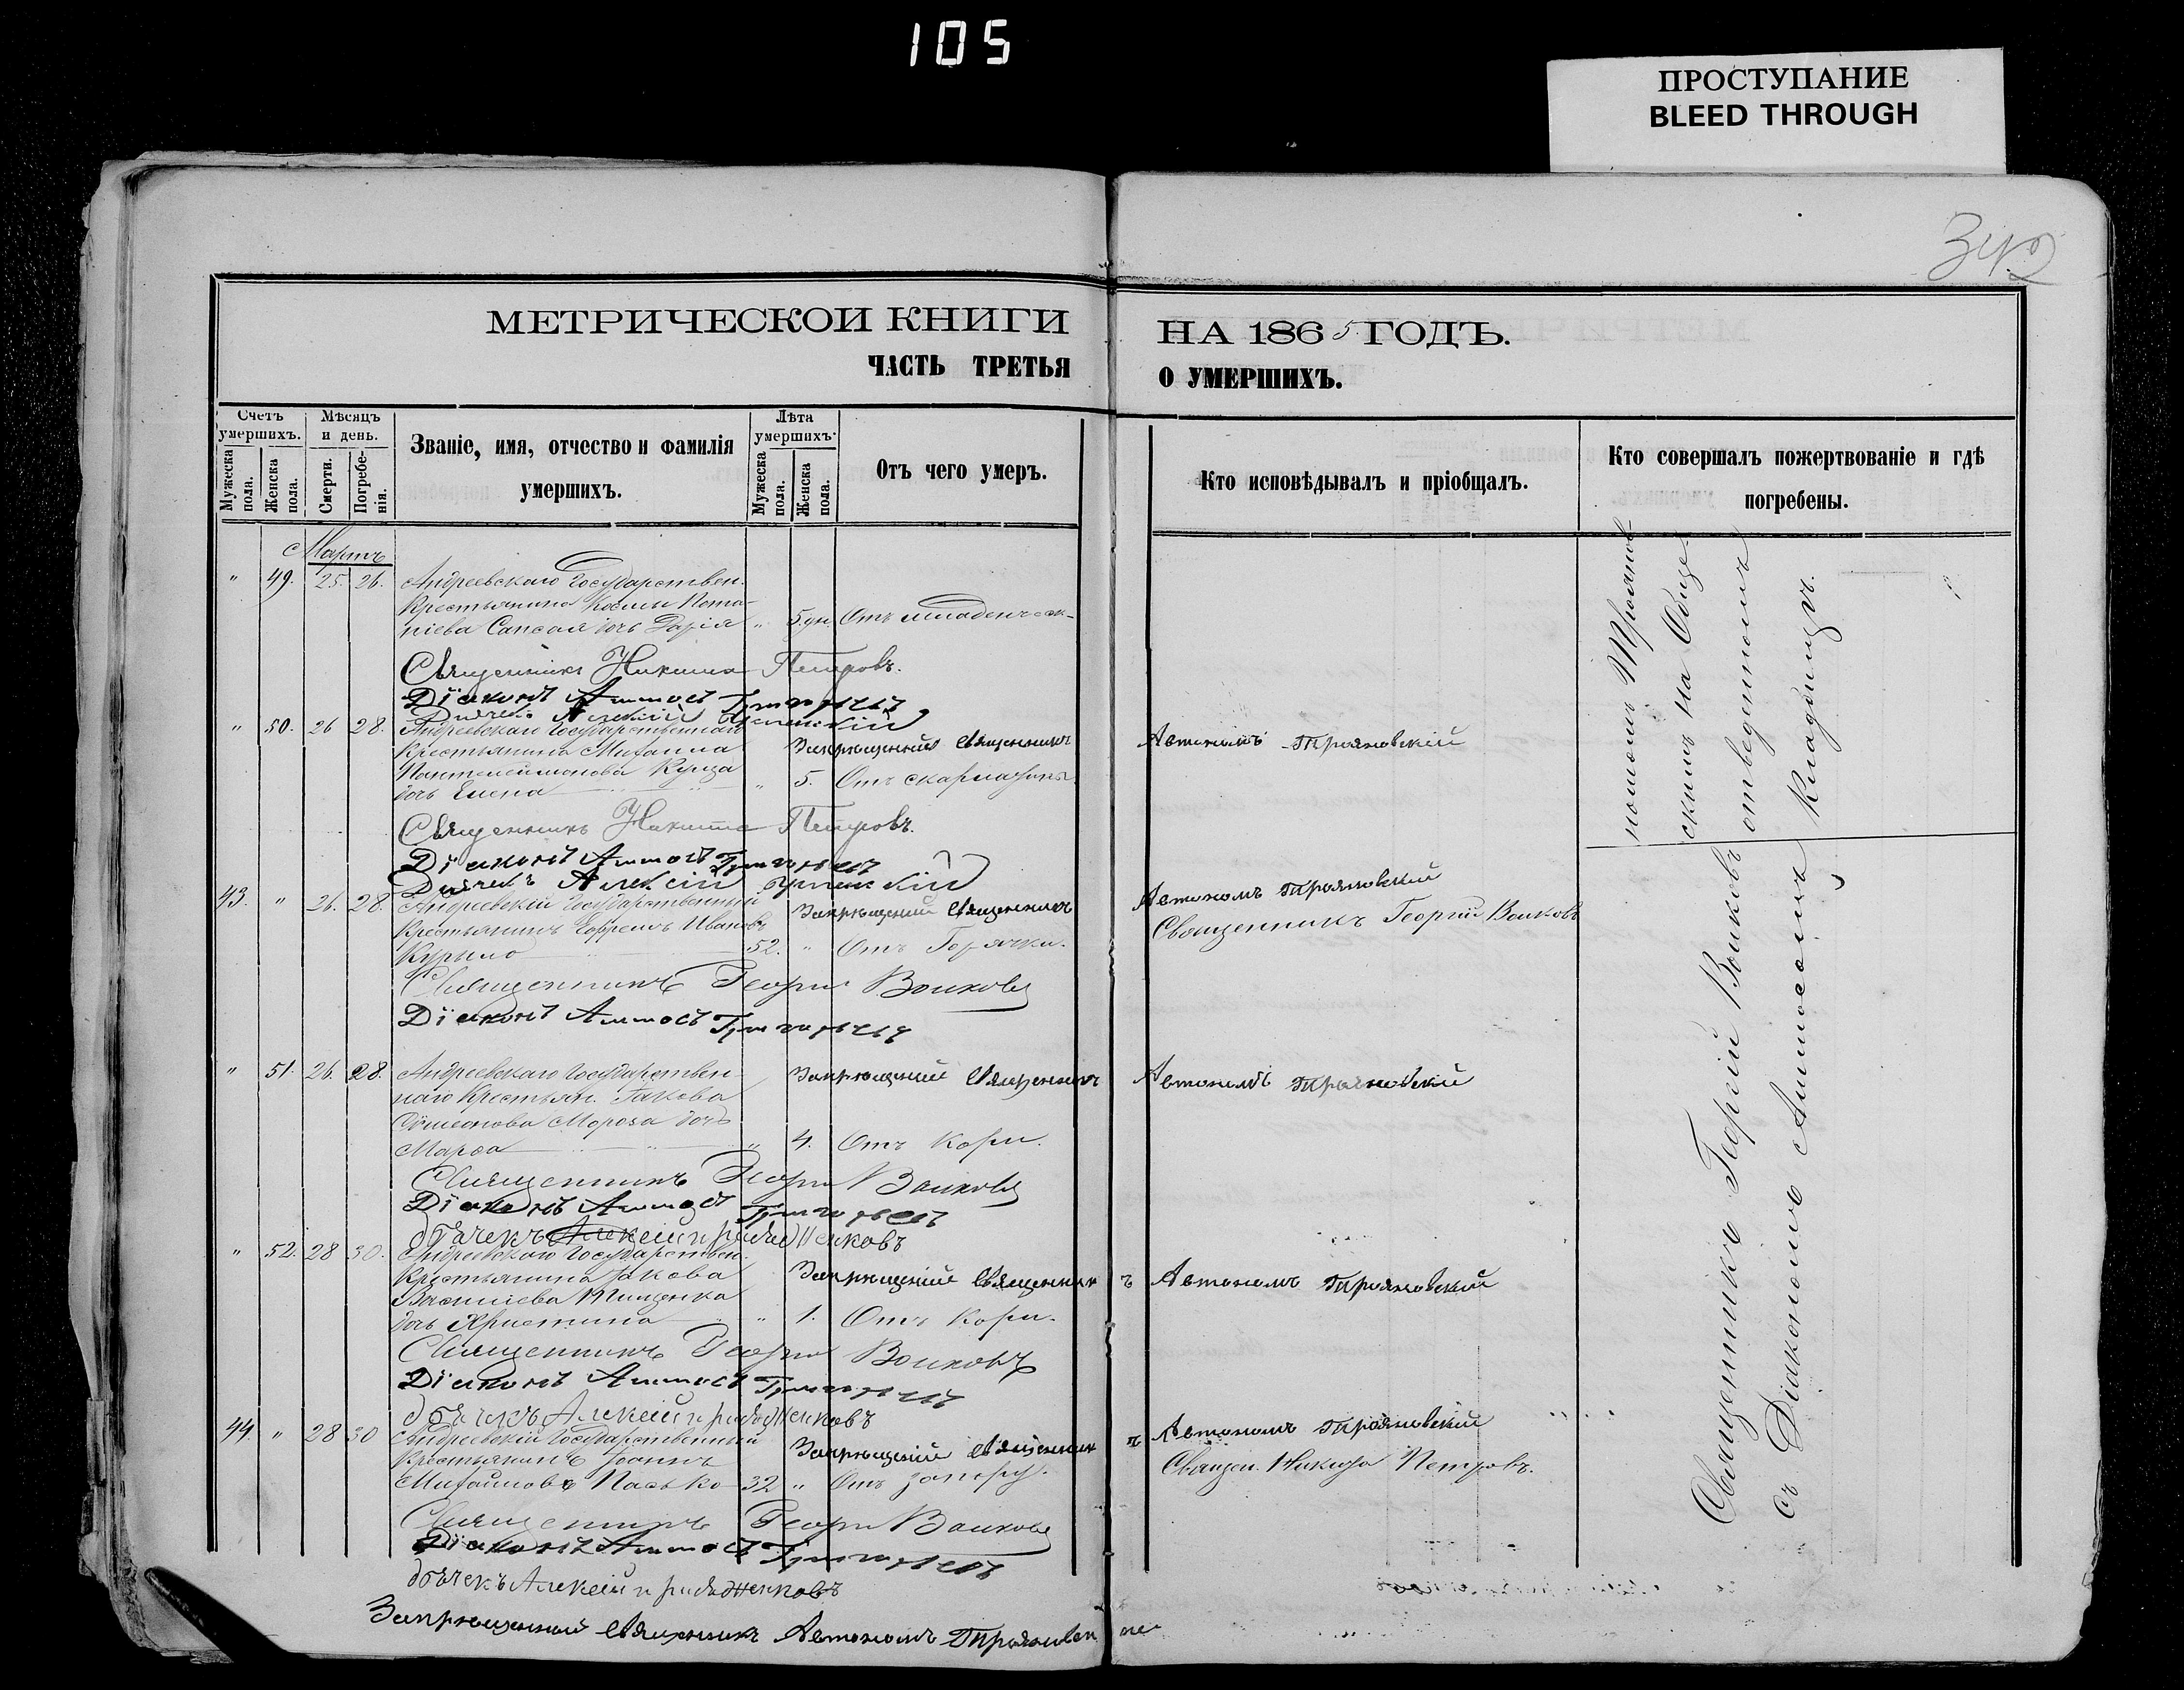 105
ПРОСТУПАНИЕ
BLEED THROUGH
342
МЕТРИЧЕСКОЙ КНИГИ НА 1865 ГОДЪ.
ЧАСТЬ ТРЕТЬЯ О УМЕРШИХЪ.
Счетъ умершихъ.
Мужеска пола.
Женска пола.
Мѣсяцъ и день.
Смерти.
Погребенія.
Званіе, имя, отчество и фамилія
умершихъ.
Лѣта умершихъ.
Мужеска пола.
Женска пола.
Отъ чего умеръ.
Кто исповѣдывалъ и пріобщалъ.
Кто совершалъ пожертвованіе и гдѣ
погребены.
Мартъ
" 49. 25. 26. Андреевскаго Государствен.
Крестьянина Космы Пота-
піева Сапсая дочь Дарія " 5.дн. Отъ младенческ-
Священникъ Никита Петровъ.
Діаконъ Аммосъ Григорьевъ
Дьячекъ Алексій Успенскій
" 50. 26 28. Андреевскаго Государственнаго
Крестьянина Михаила Запрещенный Священникъ Автономъ Трояновскій
Пантелеймонова Куцая
дочь Елена " 5. Отъ скарлатины.
Священникъ Никита Петровъ.
Діаконъ Аммосъ Григорьевъ
Дьячекъ Алексій Успенскій
43. " 26. 28. Андреевскій Государственный
Запрещенный Священникъ Автономъ Трояновскій
Крестьянинъ Ефремъ Ивановъ Священникъ Георгій Волковъ
Курыло 52. " Отъ Горячки.
Священникъ Георгій Волковъ
Діаконъ Аммосъ Григорьевъ
" 51. 26. 28. Андреевскаго Государствен- Запрещенный Священникъ Автономъ Трояновскій
наго Крестьян. Іакова
Сѵмеонова Мороза дочь
Марѳа " 4. Отъ Кори.
Священникъ Георгій Волковъ
Діаконъ Аммосъ Григорьевъ
дьячекъ Алексій
" 52. 28 30. Андреевскаго Государствен.
Крестьянина Іакова Запрещенный Священникъ Автономъ Трояновскій
Василіева Тищенка
дочь Христина " 1. Отъ Кори.
Священникъ Георгій Волковъ
Діаконъ Аммосъ Григорьевъ
дьячекъ Алексій
44. " 28 30 Андреевскій Государственный
Запрещенный Священникъ Автономъ Трояновскій
Крестьянинъ Іоаннъ
Михайловъ Пасько 32 " Отъ запору. Священ. Никита Петровъ.
Священникъ Георгій Волковъ
Діаконъ Аммосъ Григорьевъ
дьячекъ Алексій
Запрещенный Священникъ Автономъ Трояновскій
номомъ Трояновскимъ на Обще-
отведенномъ
Кладбищѣ.
Священникъ Георгій Волковъ
съ Діакономъ Аммосомъ